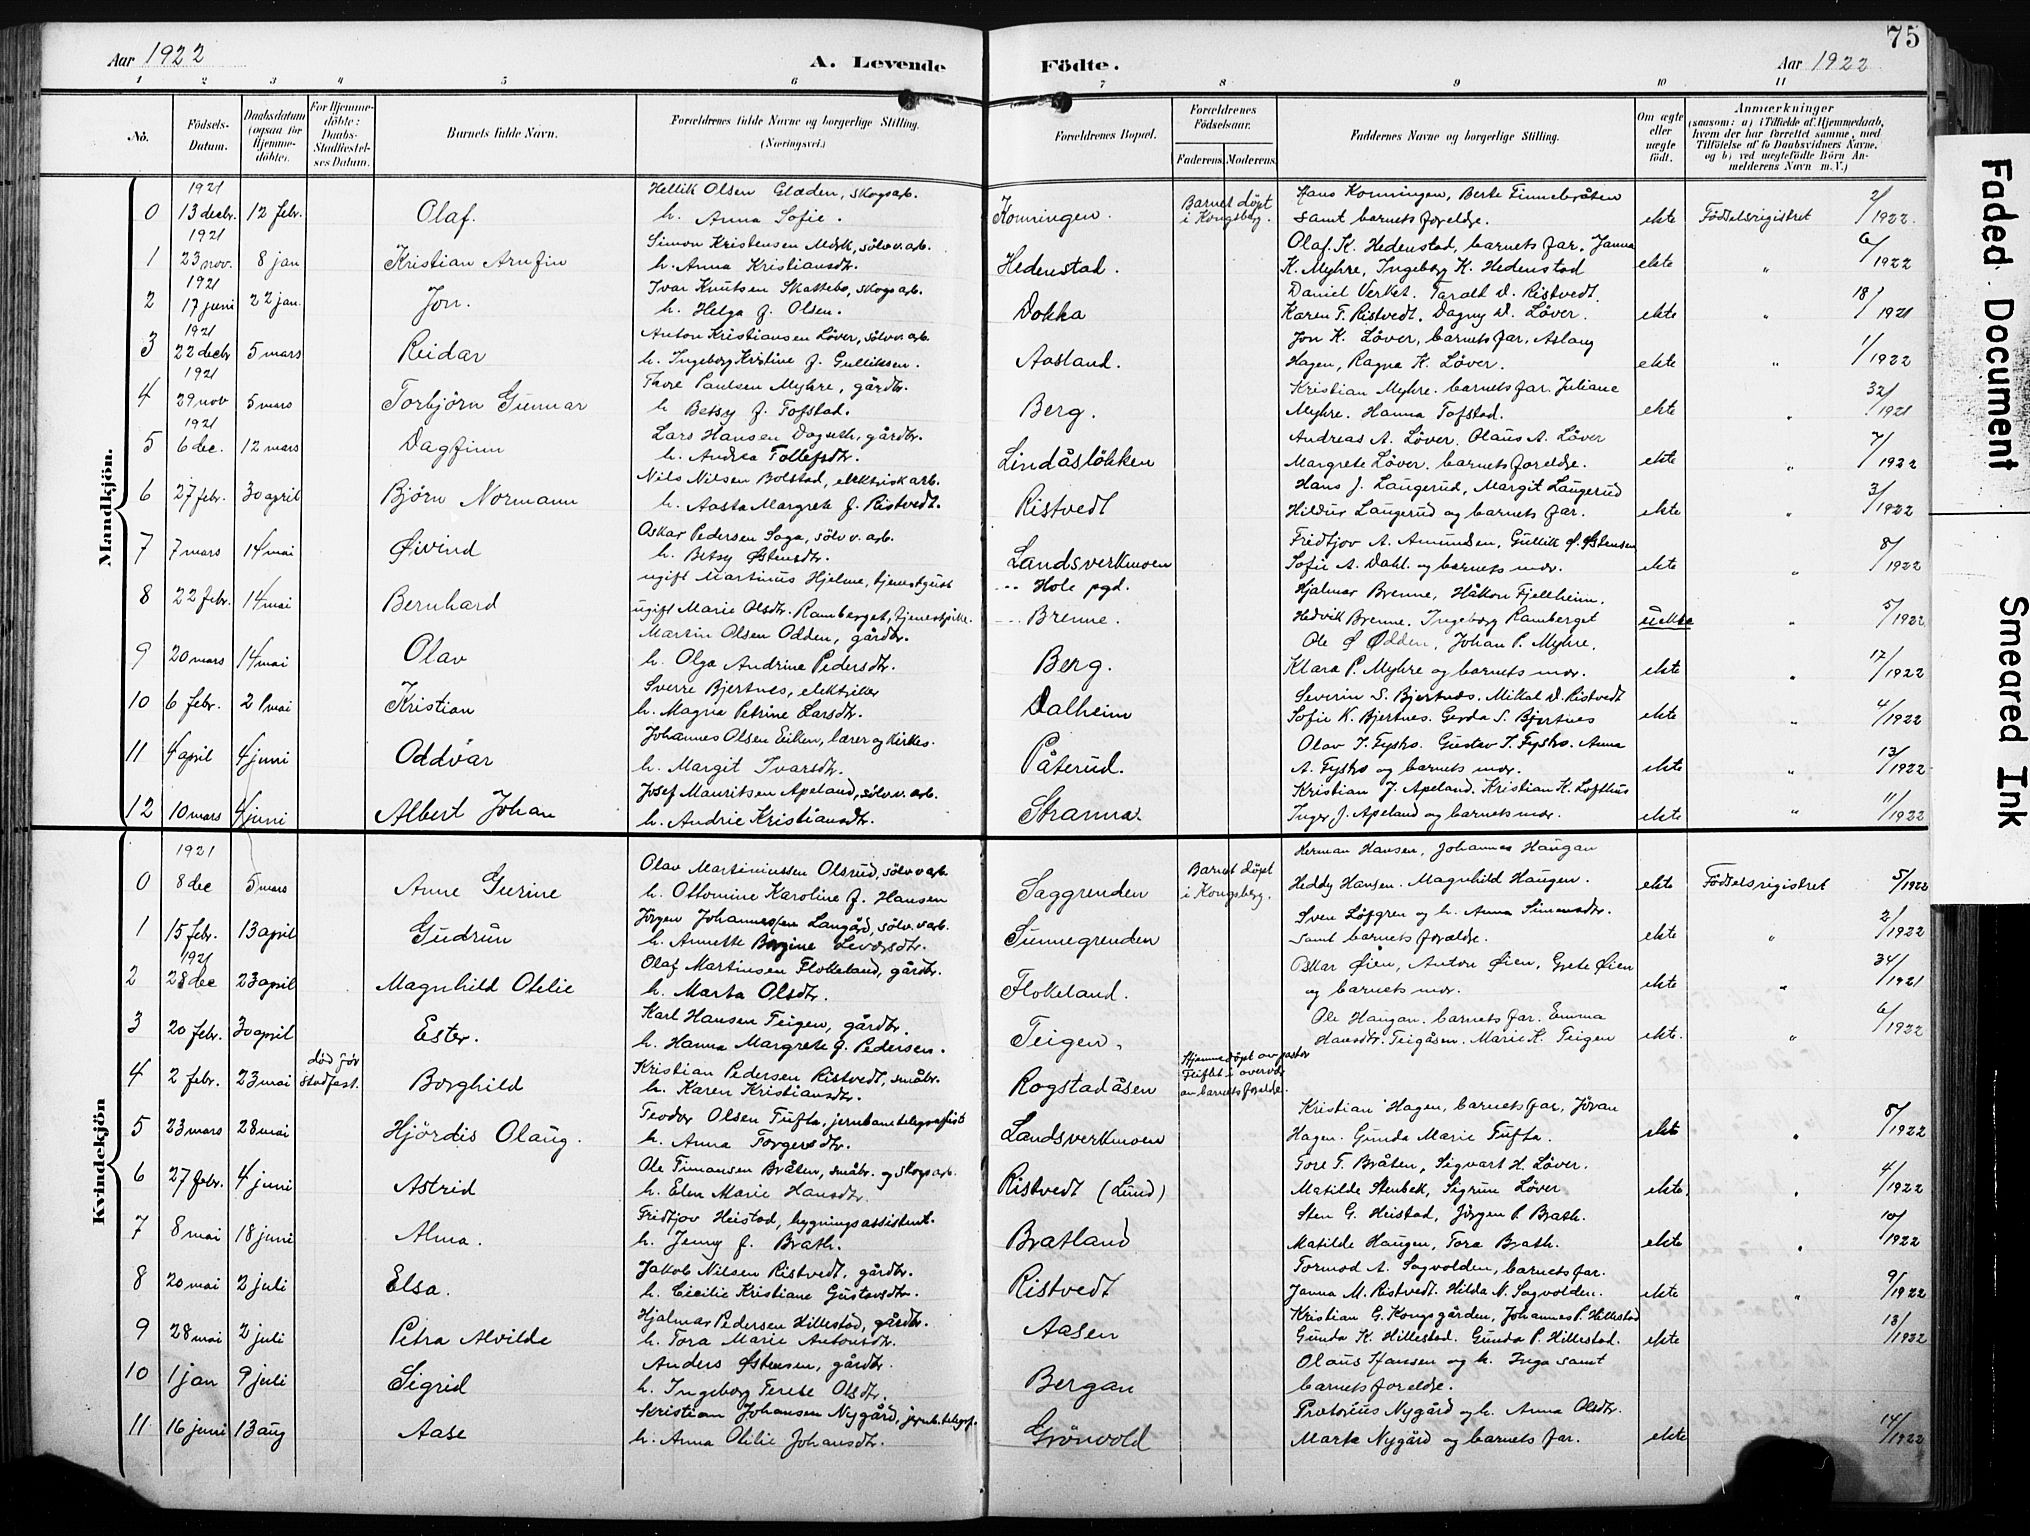 75
Aar 1922 A. Levende Födte. Aar 1922
1 2 3 4 5 6 7 8 9 10 11
No. Födsels-Datum. Daabsdatum (ogsaa for Hjemmedöbte). For Hjemmedöbte: Daabs-Stadfæstelses Datum. Barnets fulde Navn. Forældrenes fulde Navne og borgerlige Stilling. (Næringsvei.) Forældrenes Bopæl. Forældrenes Födselsaar. Faderens. Moderens. Faddernes Navne og borgerlige Stilling. Om ægte eller uægte födt. Anmærkninger (saasom: a) i Tilfælde af Hjemmedaab, hvem der har forrettet samme, med Tilföielse af to Daabsvidners Navne, og b) ved uægtefödte Börn Anmelderens Navn m. V.)
Mandkjön.
1921 Hellik Olsen Glæden, skogsarb. Barnet döpt Hans Konningen, Berte Finnebråten 2/
0 13 decbr. 12 febr. Olaf. h. Anna Sofie. Konningen. i Kongsberg. samt barnets foreldre. ekte Födselsregistret 1922.
1921 Simon Kristensen Mörk, sölvv.arb. Olaf K. Hedenstad, barnets far, Janna 6/
1 23 nov. 8 jan Kristian Arnfin h. Anna Kristiansdtr. Hedenstad. K. Myhre, Ingeborg K. Hedenstad ekte " 1922
1921 Ivar Knutsen Skattebo, skogsarb. Daniel Verket. Taralt D. Ristvedt. 18/
2 17 juni 22 jan. Jon. h. Helga f. Olsen. Dokka Karen T. Ristvedt. Dagny D. Löver. ekte " 1921
1921 Anton Kristiansen Löver, sölvv.arb. Jon K. Löver, barnets far, Aslaug 1/
3 22 decbr 5 mars Reidar h. Ingeborg Kristine f. Gulliksen. Aasland. Hagen, Ragna K. Löver. ekte " 1922
1921 Thore Paulsen Myhre, gårdbr. Kristian Myhre. barnets far. Juliane 32/
4 29 nov 5 mars Torbjörn Gunnar h. Betsy f. Tofstad. Berg. Myhre. Hanna Tofstad. ekte " 1921
1921 Lars Hansen Dogseth, gårdbr. Andreas A. Löver. Olaus A. Löver 7/
5 6 dec. 12 mars Dagfinn h. Andrea Tollefsdtr. Lindåslökken Margrete Löver. barnets foreldre. ekte " 1922
Nils Nilsen Bolstad, elektrisk arb. Hans J. Laugerud, Margit Laugerud 3/
6 27 febr. 30 april Björn Normann h. Aasta Margrete f. Ristvedt. Ristvedt Hildur Laugerud og barnets far. ekte " 1922
Oskar Pedersen Saga, sölvv.arb. Fredtjov A. Amundsen, Gullik Ø. Østensen 8/
7 7 mars 14 mai Øivind h. Betsy Østensdtr. Landsverkmoen Sofie A. Dahl. og barnets mor. ekte " 1922
ugift Martinus Hjelme, tjenestgutt -- Hole pgd. Hjalmar Brenne, Håkon Fjellheim. 5/
8 22 febr. 14 mai Bernhard ugift Marie Olsdtr. Ramberget, tjenestpike. -- Brenne. Hedvik Brenne. Ingeborg Ramberget uekte 1922
Martin Olsen Odden, gårdbr. Ole Ø Ødden, Johan P. Myhre, 17/
9 20 mars 14 mai Olav h. Olga Andrine Pedersdtr. Berg. Klara P. Myhre og barnets mor. ekte " 1922
Sverre Bjertnes, Severin S. Bjertnes. Mikal D. Ristvedt 4/
10 6 febr. 21 mai Kristian h. Magna Petrine Larsdtr. Dalheim Sofie K. Bjertnes. Gerda S. Bjertnes ekte " 1922
Johannes Olsen Eiken, lærer og kirkes. Olav T. Fysko. Gustav T. Fysko. Anna 13/
11 4 april 4 juni Oddvar h. Margit Ivarsdtr. Påterud. A. Fysko og barnets mor. ekte " 1922
Josef Mauritsen Apeland, sölvv.arb. Kristian J. Apeland. Kristian K. Lofthus 11/
12 10 mars 4 juni Albert Johan h. Andrie Kristiansdtr. Stranna. Inger J. Apeland og barnets mor. ekte " 1922
Kvindekjön
1921 Olav Martiniussen Olsrud, sölvv.arb. Barnet döpt Herman Hansen, Johannes Haugan
0 8 dec 5 mars Anne Gurine h. Ottomine Karoline f. Hansen Saggrenden i Kongsberg. Heddy Hansen. Magnhild Haugen. ekte Födselsregistret 5/1922
Jörgen Johannessen Langård, sölvv.arb. Sven Löfgren og h. Anna Simensdtr. 2/
1 15 febr. 13 april Gudrun h. Annette Bergine Leversdtr. Sunnegrenden samt barnets foreldre. ekte " 1922
1921 Olaf Martinsen Flokeland, gårdbr. Oskar Øien, Anton Øien, Grete Øien 34/
2 28 dec 23 april Magnhild Otilie h. Marta Olsdtr. Flokeland. og barnets mor. ekte " 1921
Karl Hansen Teigen, gårdbr. Ole Haugan. barnets far. Emma 6/
3 20 febr. 30 april Ester. h. Hanna Margrete f. Pedersen. Teigen. Hansdtr. Teigåsen. Marie K. Teigen ekte. " 1922
död för Kristian Pedersen Ristvedt, småbr. Hjemmedöpt av pastor
4 2 febr. 23 mai stadfest. Borghild h. Karen Kristiansdtr. Rogstadåsen Fliflet i overvær av barnets foreldre.
Teodor Olsen Tufta, jernbanetelegrafist Kristian Hagen, barnets far, Jövan 8/
5 23 mars 28 mai Hjördis Olaug. h. Anna Torgersdtr. Landsverkmoen Hagen. Gunda Marie Tufta. ekte " 1922
Ole Timansen Bråten, småbr. og skogsarb. Tore T. Bråten, Sigvart H. Löver. 4/
6 27 febr. 4 juni Astrid h. Elen Marie Hansdtr. Ristvedt (Lund) Matilde Stenbek, Sigrun Löver ekte. " 1922
Fridtjov Heistad, bygningsassistent. Sten G. Heistad, Jörgen P. Brath. 10/
7 8 mai 18 juni Alma. h. Jenny f. Brath. Bratland Matilde Haugen, Tora Brath. ekte " 1922
Jakob Nilsen Ristvedt, gårdbr. Tormod A. Sagvolden, barnets far. 9/
8 20 mai 2 juli Elsa. h. Cecilie Kristiane Gustavsdtr. Ristvedt Janna M. Ristvedt. Hilda N. Sagvolden. ekte " 1922
Hjalmar Pedersen Hillestad, gårdbr. Kristian G. Kongsgården, Johannes P. Hillestad 13/
9 28 mai 2 juli Petra Alvilde h. Tora Marie Antonsdtr. Aasen Gunda K. Hillestad. Gunda P. Hillestad. ekte 1922
Anders Østensen, gårdbr. Olaus Hansen og h. Inga samt
10 1 jan 9 juli Sigrid h. Ingeborg Terese Olsdtr. Bergan barnets foreldre.
Kristian Johansen Nygård, jernb.telegf. Pretorius Nygård og h. Anna Olsdtr. 14/
11 16 juni 13 aug Aase h. Anna Otilie Johansdtr. Grönvold Marte Nygård og barnets far. ekte 1922
Faded Document
Smeared Ink